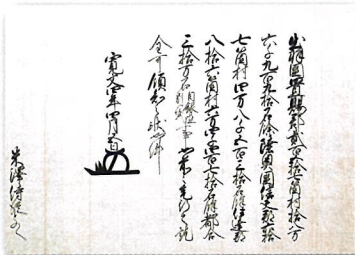 出羽国置賜郡弐百弐拾七箇村拾八万
六千九百九拾石余陸奥国信夫郡六拾
七箇村四万八千五百三拾石余伊達郡
八拾六箇村六万四千四百七拾石余都合
三拾万石目録在別紙事如前々充行之訖
全可領知之状如件
寛文四年四月五日
米澤侍従とのへ